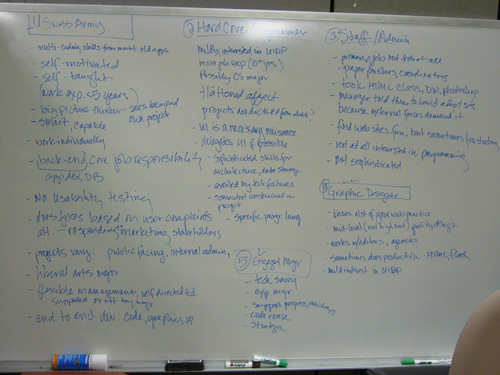 1 Swiss Army
- multi-coding skills from maint old apps
- self-motivated
- self-taught
(work exp <5 years)
- big picture thinker - sees beyond own project
- smart, capable
- work individually
- back-end, core job responsibility
app dev, DB
- No Usability testing
- does fixes based on user complaints
- responding/marketing, stakeholders
- projects vary: public facing, internal admin,
- liberal arts major
- flexible management, self directed &
supported or not by mgr
- end to end dev. code, graphics, UI
2 Hard Core
mildly interested in UIDP
more job exp (10+ yrs)
Possibly CS major
flattened affect
projects are dictated from above?
- UI is a necessary nuisance
delegates UI if possible
- sophisticated skills for
architecture, data storage
- excited by tech features
- somewhat constrained in
project
- specific prog. lang
3 Staff/Admin
- primary job is not tech at all
- paper pushers, coordinators
- took HTML class, DW, photoshop
- manager told them to build a dept site
because external forces demand it
- find websites fun, but sometimes frustrating
- not at all interested in programming
- not sophisticated
4 Graphic Designer
- knows a lot of good web practice
- works w/editors, agencies
- sometimes does production - HTML, flash
- mild interest in UIDP
5 Engaged Mgr
- tech savvy
- exp. mgr
- support progress,
- code reuse
- Strategic